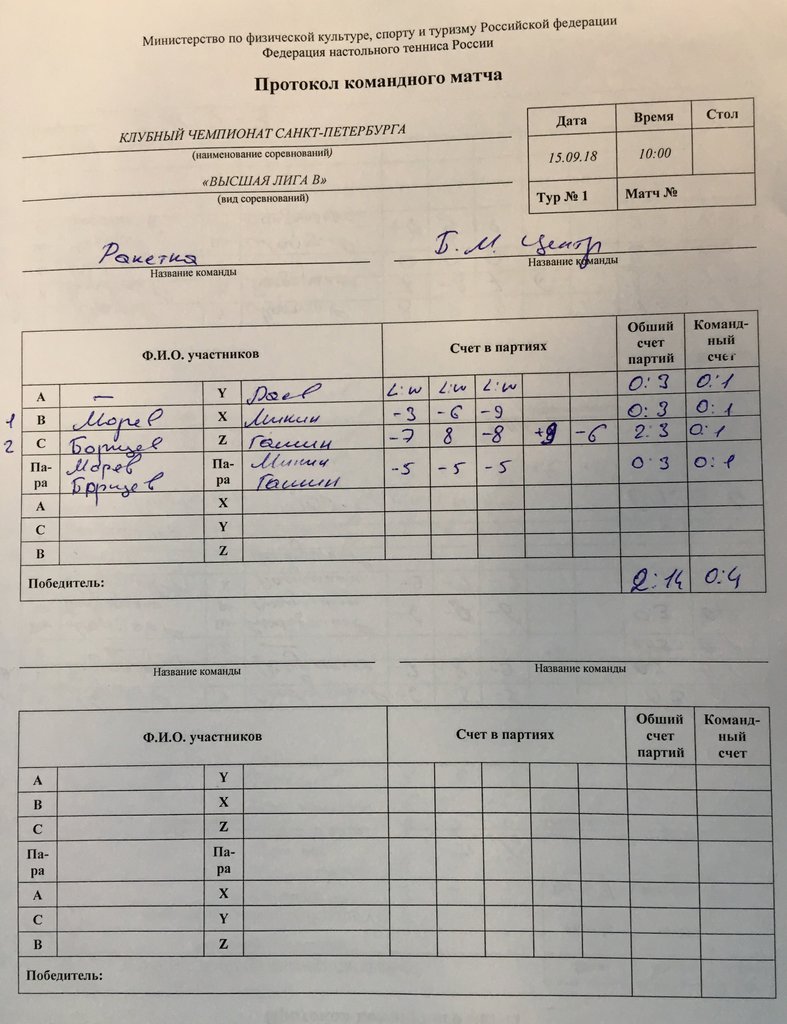 Министерство по физической культуре, спорту и туризму Российской федерации
Федерация настольного тенниса России
Протокол командного матча
КЛУБНЫЙ ЧЕМПИОНАТ САНКТ-ПЕТЕРБУРГА
(наименование соревнований)
«ВЫСШАЯ ЛИГА В»
(вид соревнований)
Дата Время Стол
15.09.18 10:00
Тур № 1 Матч №
Ракетка Б.М. Центр
Название команды Название команды
Ф.И.О. участников Счет в партиях Обший счет партий Команд-ный счет
A — Y L:w L:w L:w 0:3 0:1
1 B Морев X Минин -3 -6 -9 0:3 0:1
2 C Борщев Z Гашин -7 8 -8 +9 -6 2:3 0:1
Па-ра Морев Па-ра Минин -5 -5 -5 0 3 0:1
Борщев Гашин
A X
C Y
B Z
Победитель: 2:14 0:4
Название команды Название команды
Ф.И.О. участников Счет в партиях Обший счет партий Команд-ный счет
A Y
B X
C Z
Па-ра Па-ра
A X
C Y
B Z
Победитель: